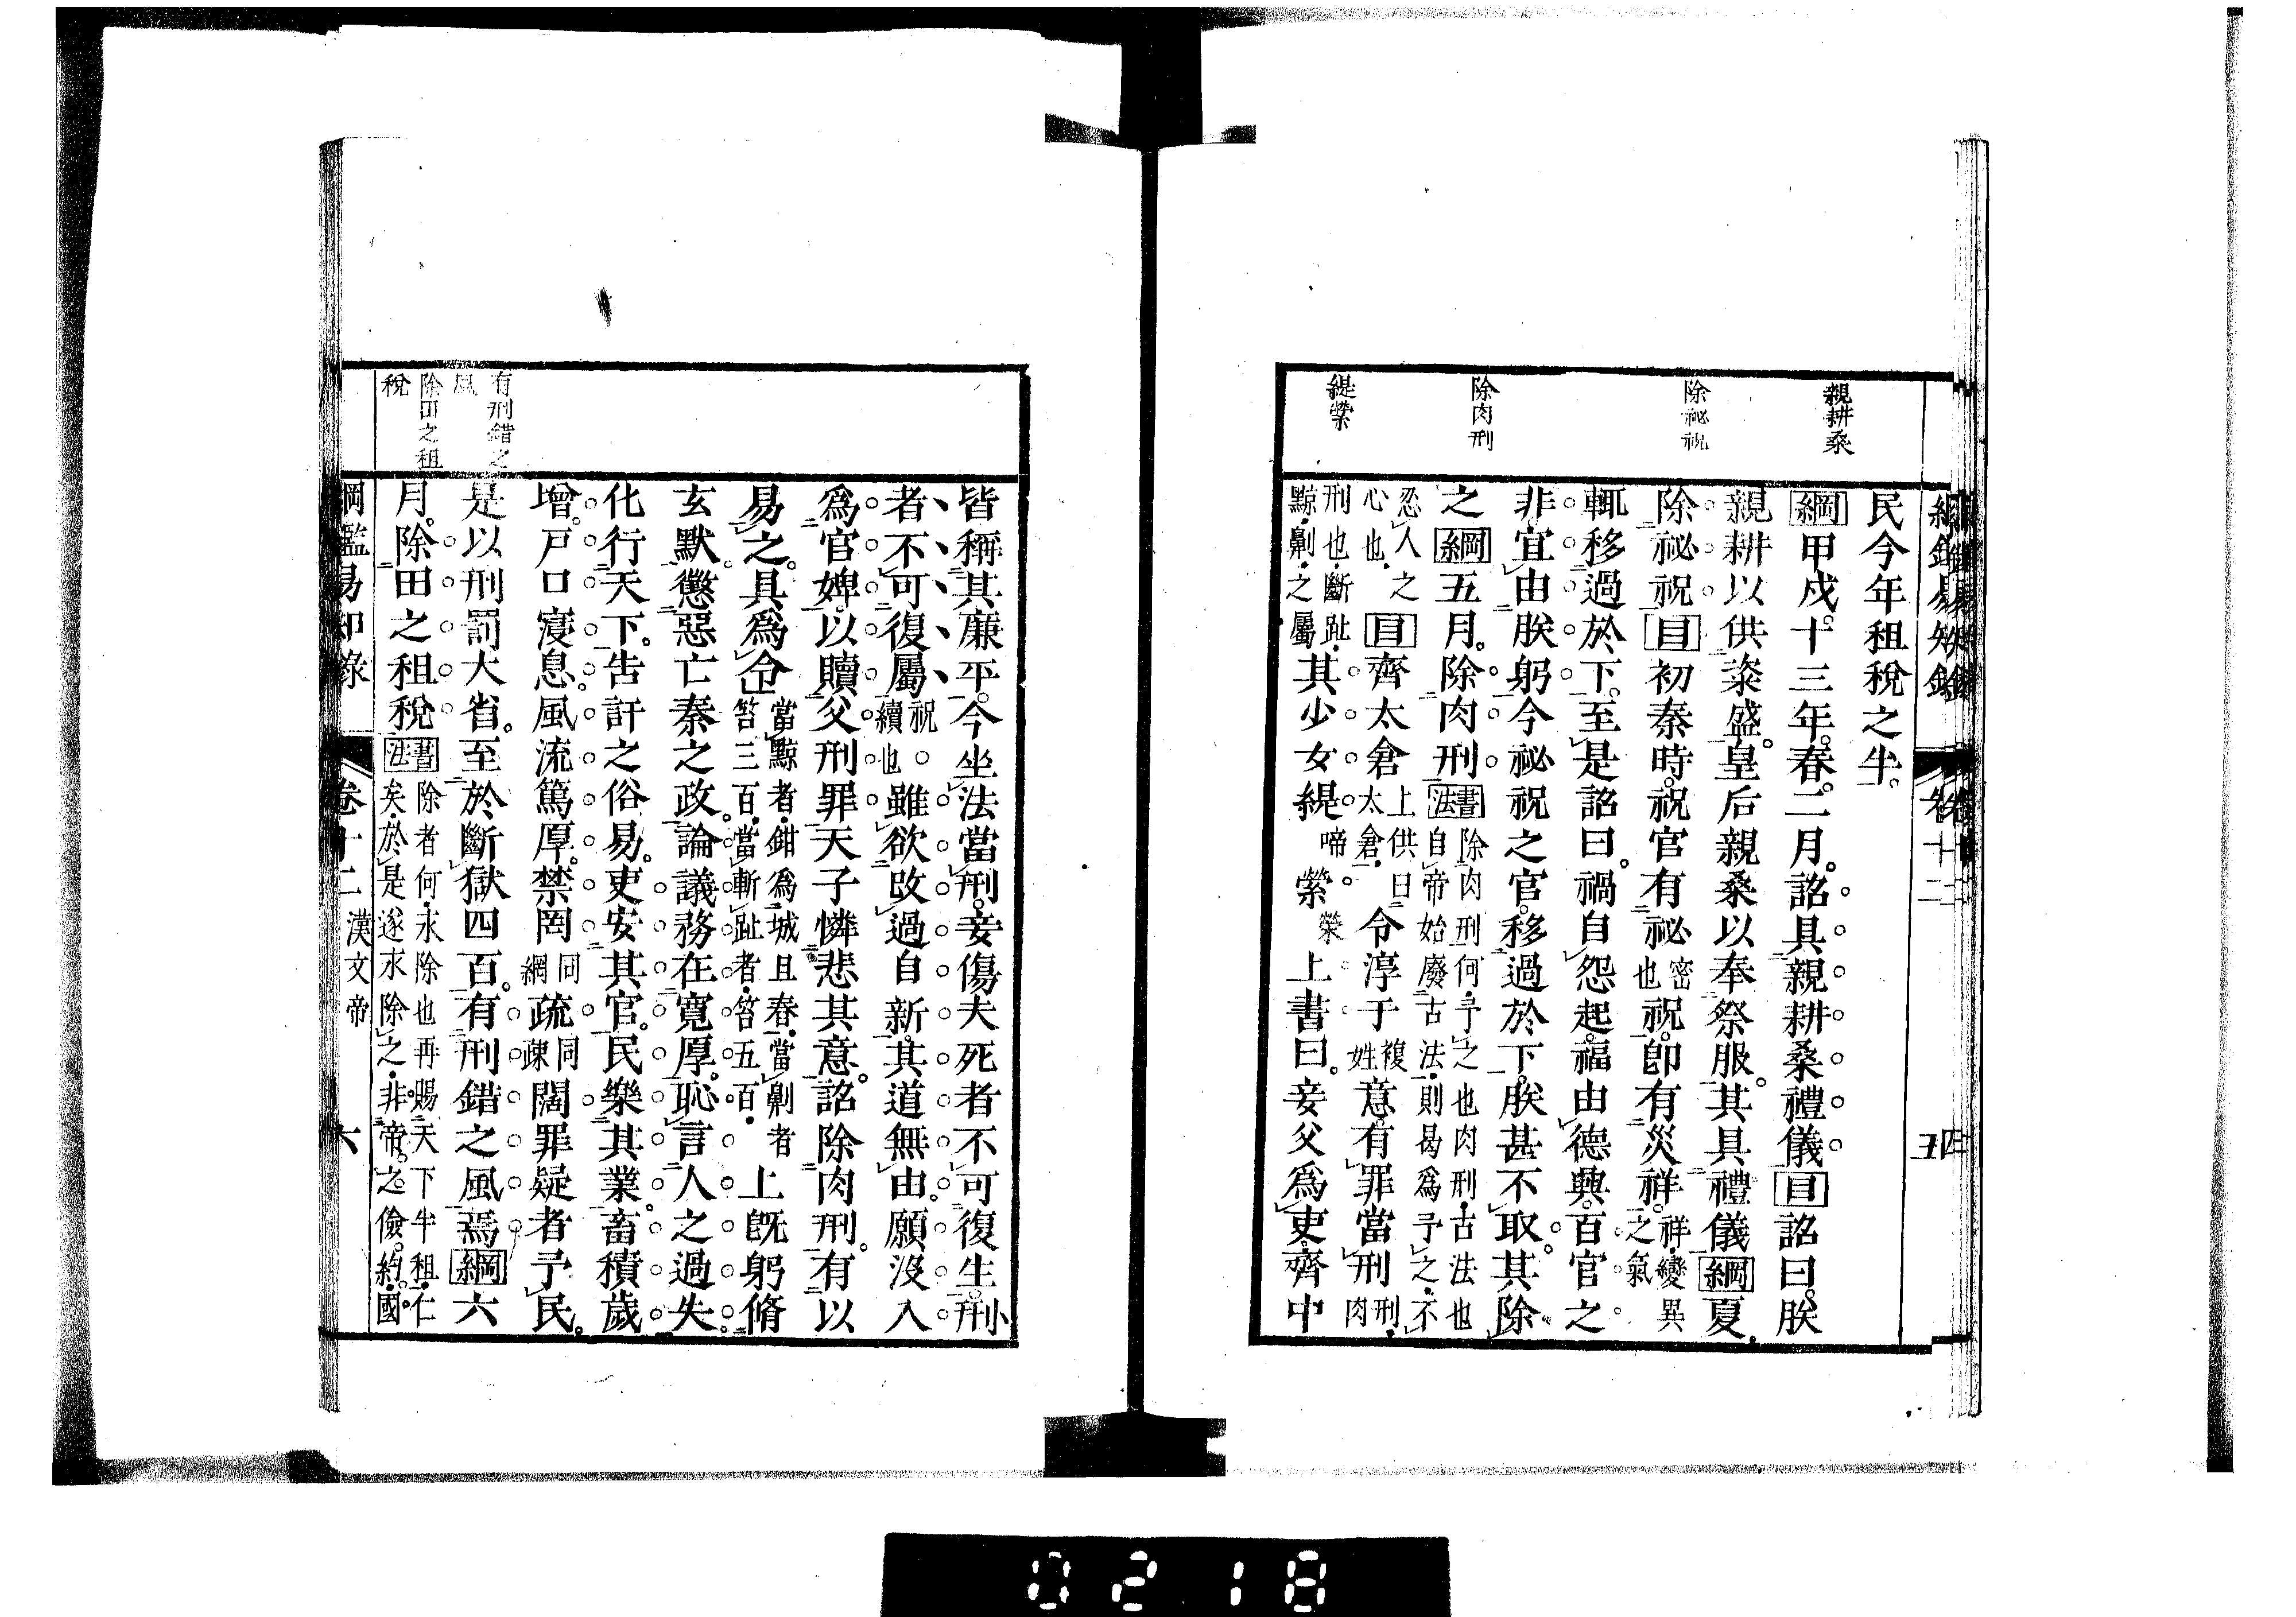 綱鑑易知錄 卷十二 五
親耕桑
除祕祝
除肉刑
緹縈
民今年租稅之半。
綱甲戌。十三年。春。二月。詔具親耕桑禮儀目詔曰。朕
親耕以供粢盛。皇后親桑以奉祭服。其具禮儀綱夏。
除祕祝目初秦時。祝官有祕密也祝。卽有災祥。祥。變異之氣
輒移過於下。至是詔曰。禍自怨起。福由德興。百官之
非。宜由朕躬。今祕祝之官。移過於下。朕甚不取。其除
之綱五月。除肉刑書法除肉刑何。予之也肉刑。古法也自帝始廢古法。則曷爲予之。不
忍人之心也。目齊太倉上供曰太倉。令淳于複姓意。有罪當刑刑。肉
刑也。斷趾。黥。劓之屬其少女緹啼縈縈上書曰。妾父爲吏。齊中
皆稱其廉平。今坐法當刑。妾傷夫死者不可復生。刑
者不可復屬祝續也雖欲改過自新。其道無由。願沒入
爲官婢。以贖父刑罪天子憐悲其意。詔除肉刑。有以
易之。具爲令當黥者。鉗爲城旦舂。當劓者笞三百。當斬趾者。笞五百。上旣躬脩
玄默。懲惡亡秦之政。論議務在寬厚。恥言人之過失。
化行天下。告訐之俗易。吏安其官。民樂其業。畜積歲
增。戶口寖息。風流篤厚。禁罔同網疏同疎闊。罪疑者予民。
是以刑罰大省。至於斷獄四百。有刑錯之風焉綱六
月。除田之租稅書法除者何。永除也再賜天下半租。仁矣。於是遂永除之。非帝之儉約。國
有刑錯之
風
除田之租
稅
綱鑑易知錄 卷十二 漢文帝 六
0218